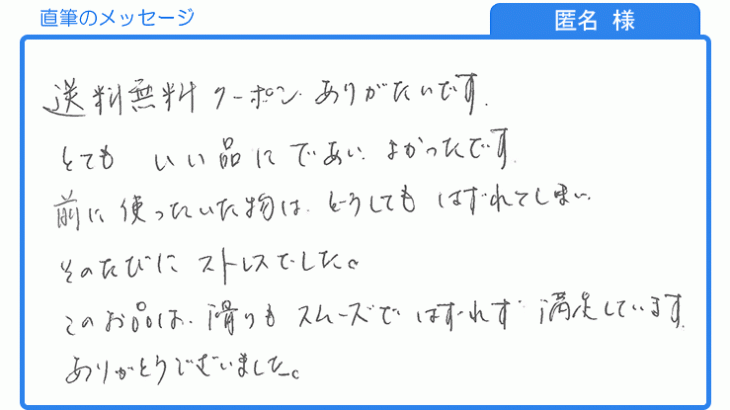 直筆のメッセージ
匿名 様
送料無料クーポンありがたいです.
とても いい品にであい よかったです.
前に使っていた物は、どうしてもはずれてしまい
そのたびにストレスでした。
このお品は、滑りもスムーズではずれず 満足しています.
ありがとうございました。